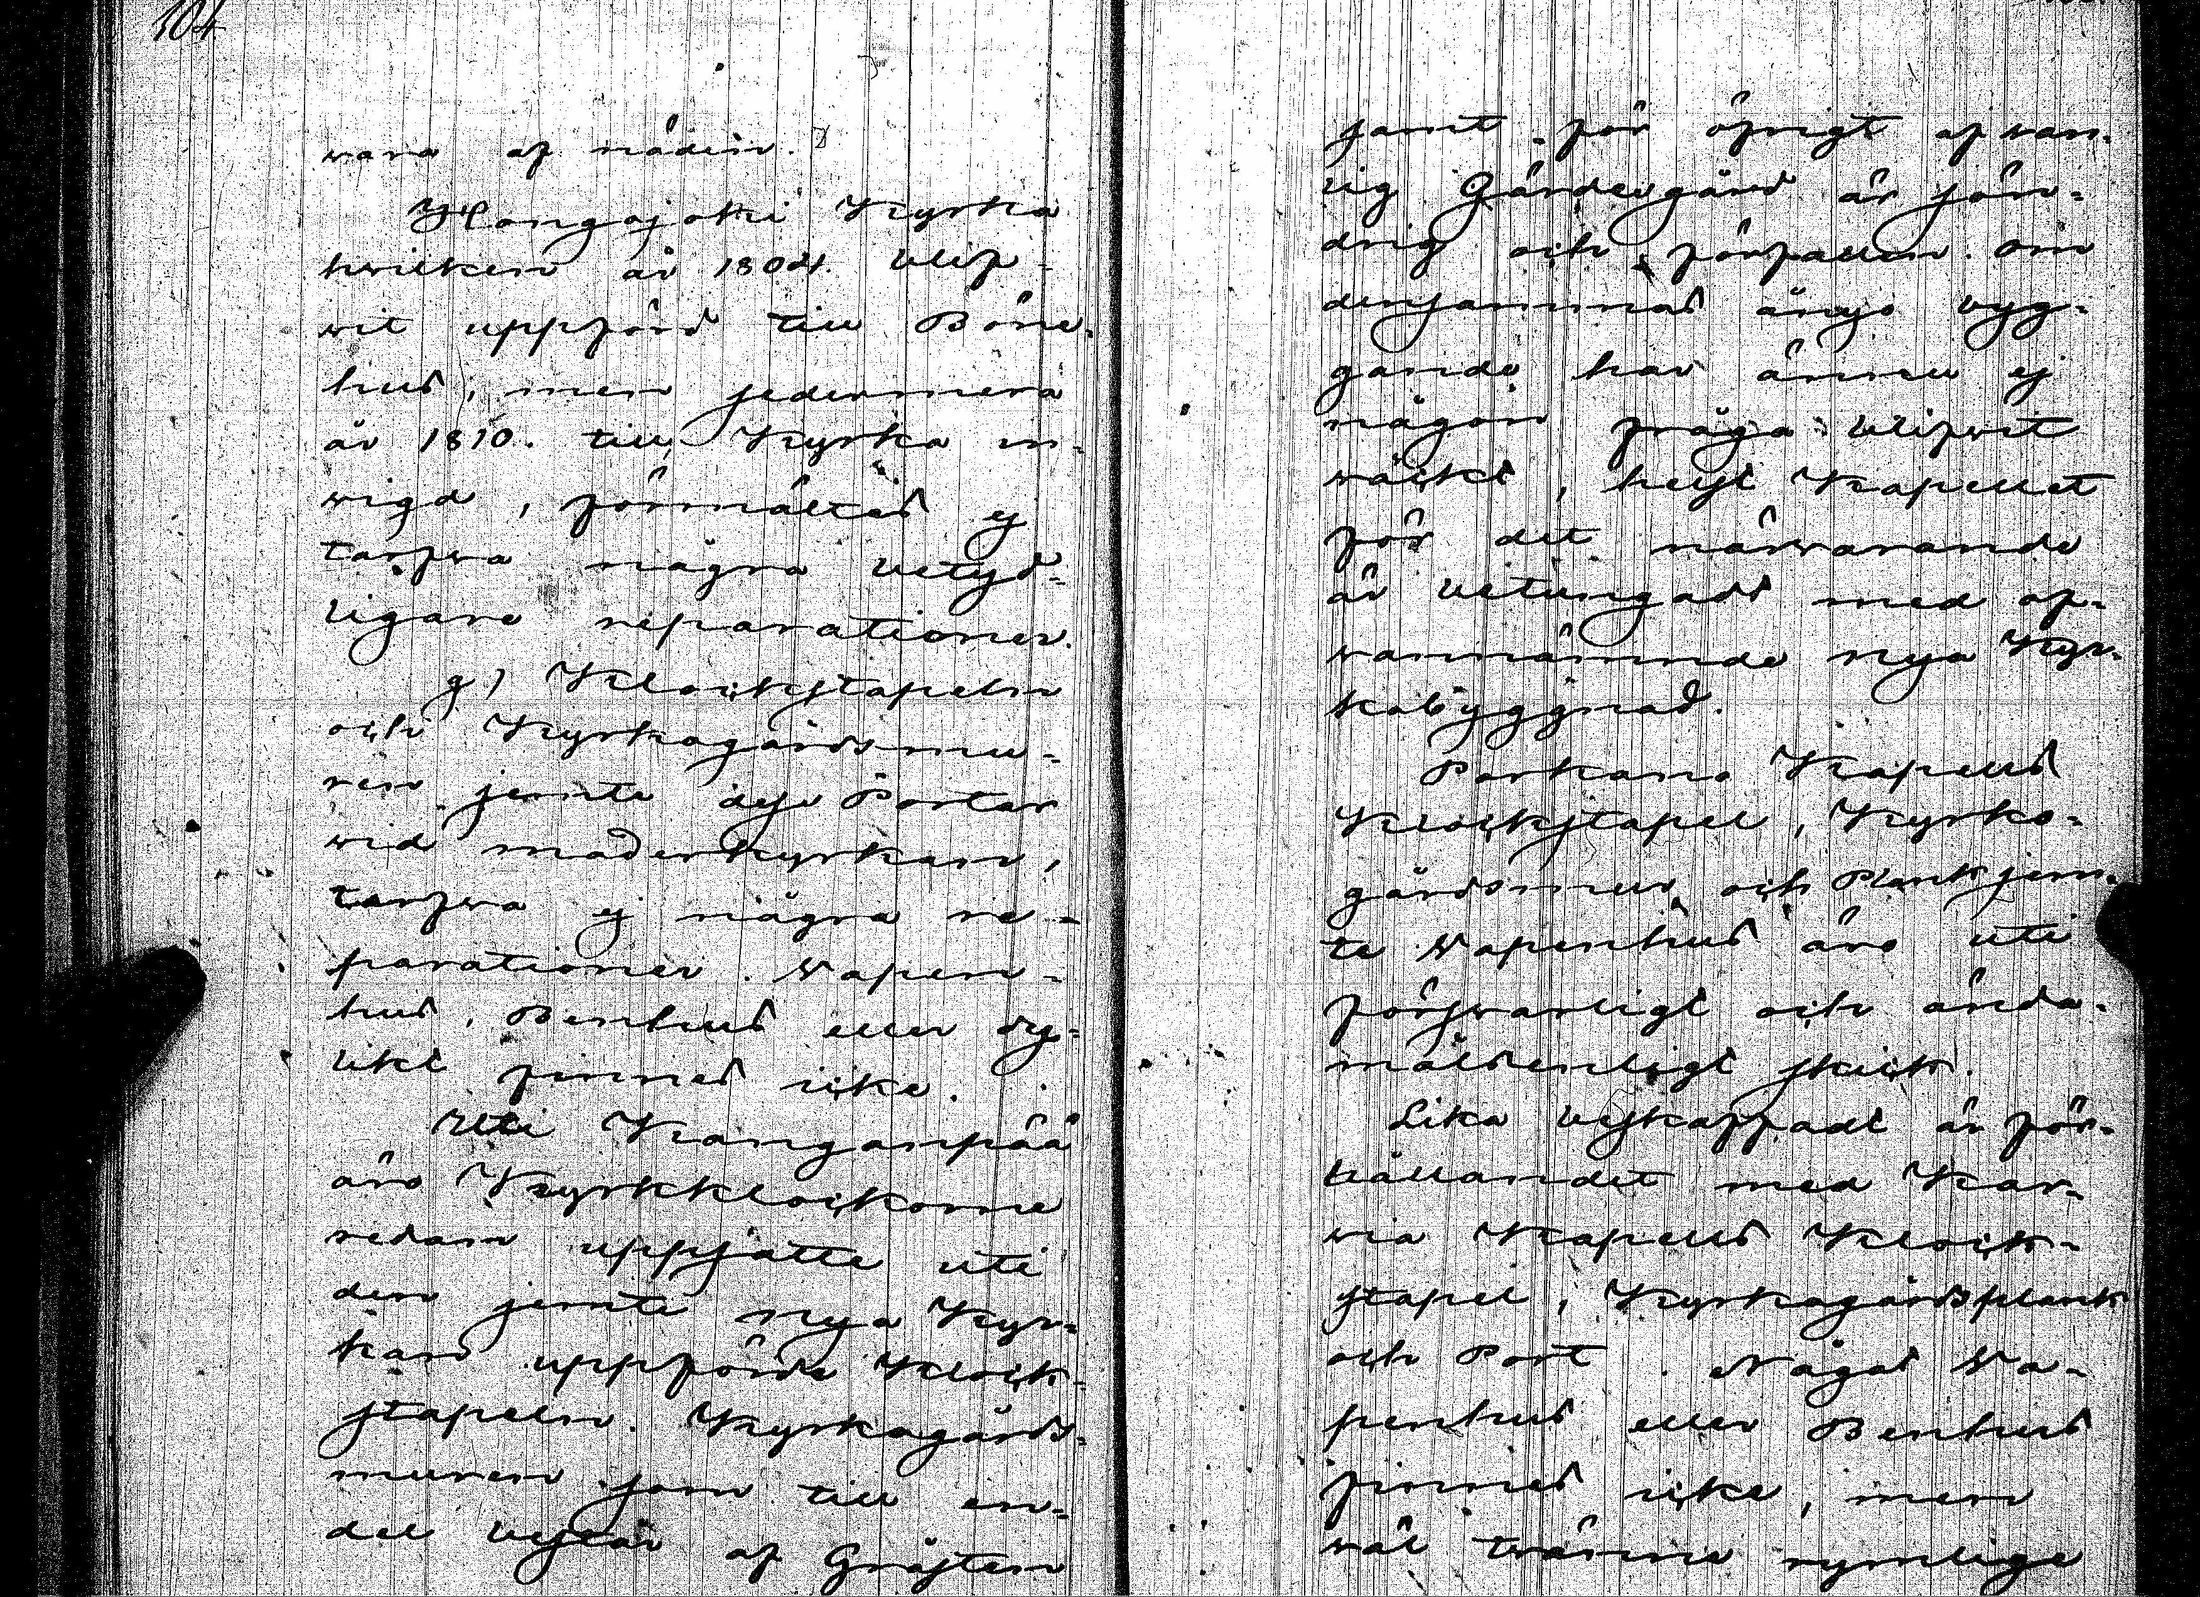 104
wara af nöden.
Hongojoki Kyrka
hwilken år 1804. blif-
wit uppförd till Böne-
hus, men sedermera
år 1810. till Kyrka in-
wigd, förmältes ej
tarfwa några betyd-
ligare reparationer.
g) Klockstapeln
och Kyrkogårdsmu-
ren jemte dess Portar
wid moderkyrkan,
tarfwa ej några re-
parationer. Wapen-
hus, Benhus eller dy-
likt finnes icke.
Uti Kanganpää
äro Kyrkklockorne
redan uppsatte uti
den jemte nya Kyr-
kan uppförde Klock-
stapeln. Kyrkogårds-
muren som till en-
del består af Gråsten
samt för öfrigt af wan-
lig Gärdesgård är sön-
drig och förfallen. Om
densammas ånyo byg-
gande har ännu ej
någon fråga blifwit
wäckt, helst Kapellet
för det närwarande
är betungadt med of-
wannämnde nya Kyr-
kobyggnad.
Parkano Kapells
Klockstapel, Kyrko-
gårdsmur och Plank jem-
te Wapenhus äro uti
förswarligt och ända-
målsenligt skick.
Lika beskaffadt är för-
hållandet med Kar-
via Kapells Klock-
stapel, Kyrkogårdsplank
och Port. Något Wa-
penhus eller Benhus
finnes icke, men
wäl twänne rymlige